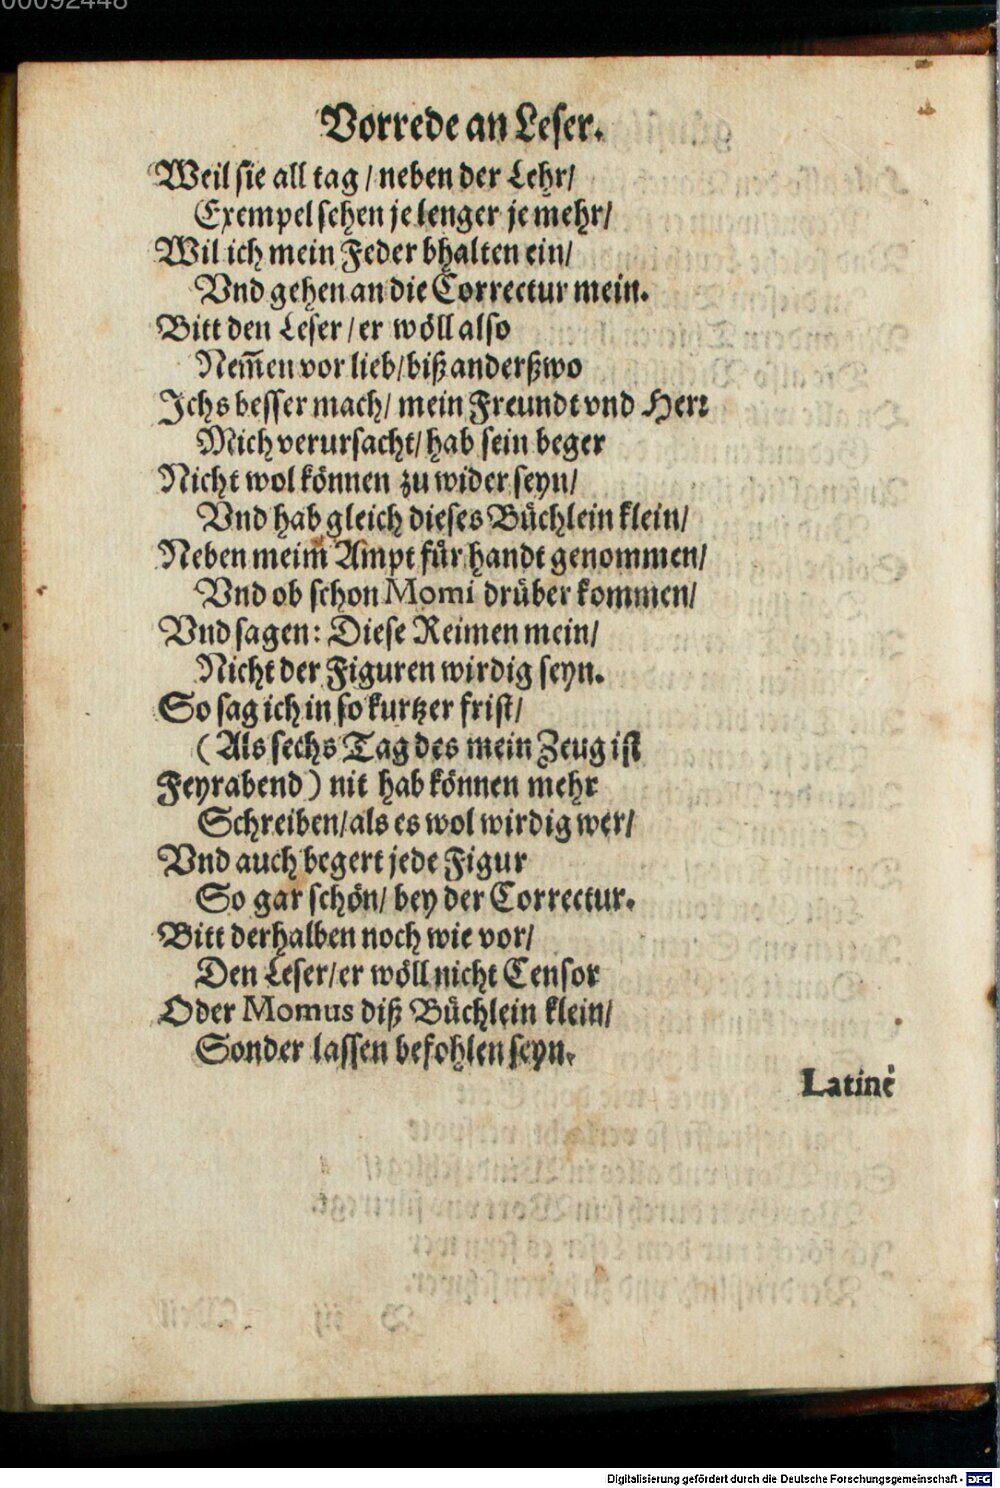 00092448
Vorrede an Leser.
Weil sie all tag / neben der Lehr /
Exempel sehen je lenger je mehr /
Wil ich mein Feder bhalten ein /
Vnd gehen an die Correctur mein.
Bitt den Leser / er wöll also
Nem̃en vor lieb / biß anderßwo
Ichs besser mach / mein Freundt vnd Herr
Mich verursacht / hab sein beger
Nicht wol können zu wider seyn /
Vnd hab gleich dieses Büchlein klein /
Neben meim Ampt für handt genommen /
Vnd ob schon Momi drüber kommen /
Vnd sagen: Diese Reimen mein /
Nicht der Figuren wirdig seyn.
So sag ich in so kurtzer frist /
(Als sechs Tag des mein Zeug ist
Feyrabend) nit hab können mehr
Schreiben / als es wol wirdig wer /
Vnd auch begert jede Figur
So gar schön / bey der Correctur.
Bitt derhalben noch wie vor /
Den Leser / er wöll nicht Censor
Oder Momus diß Büchlein klein /
Sonder lassen befohlen seyn.
Latinè
Digitalisierung gefördert durch die Deutsche Forschungsgemeinschaft - DFG